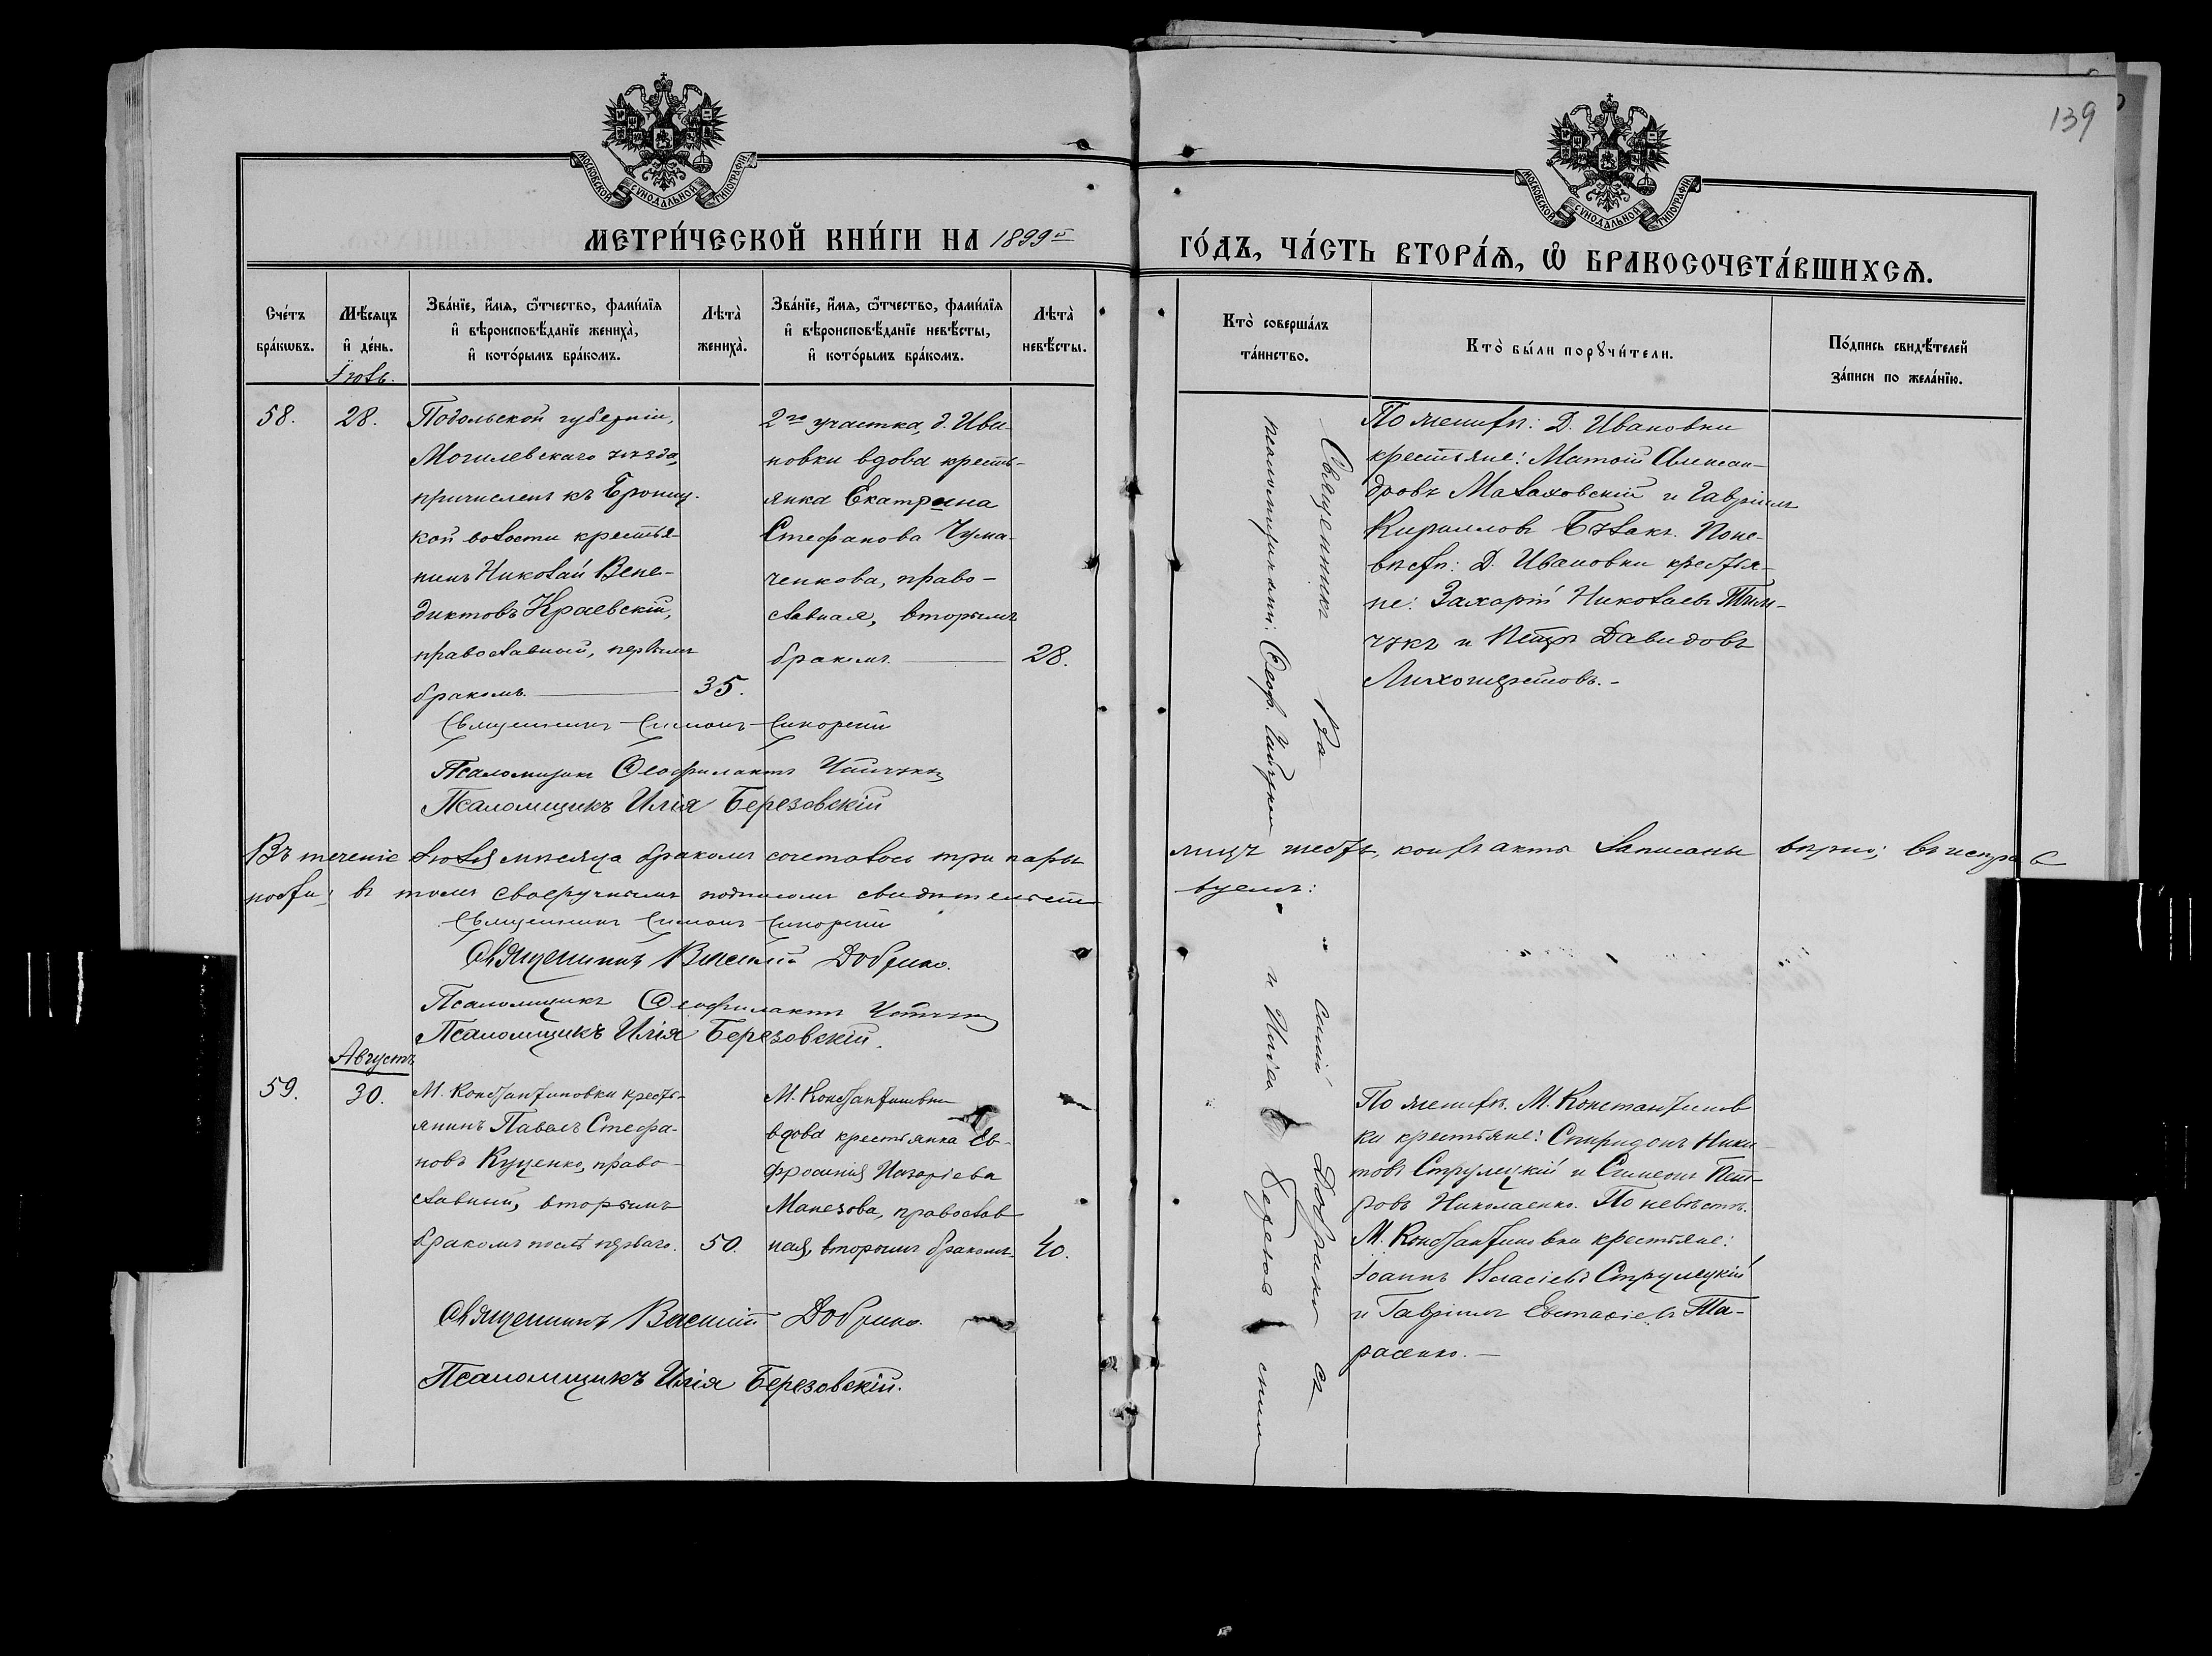 139
МОСКОВСКОЙ СѴНОДАЛЬНОЙ ТИПОГРАФІИ.
МОСКОВСКОЙ СѴНОДАЛЬНОЙ ТИПОГРАФІИ.
МЕТРИ́ЧЕСКОЙ КНИ́ГИ НА 1899й
ГО́ДЪ, ЧА́СТЬ ВТОРА́Ѧ, Ѽ БРАКОСОЧЕТА́ВШИХСѦ.
Сче́тъ
бра́кѡвъ.
Мѣ́сяцъ
и҆ де́нь.
Зва́нїе, и҆́мѧ, ѻ҆́тчество, фами́лїѧ
и҆ вѣроисповѣ́данїе жениха̀,
и҆ кото́рымъ бра́комъ.
Лѣта̀
жениха̀.
Зва́нїе, и҆́мѧ, ѻ҆́тчество, фами́лїѧ
и҆ вѣроисповѣ́данїе невѣ́сты,
и҆ кото́рымъ бра́комъ.
Лѣта̀
невѣ́сты.
Кто̀ соверша́лъ
та́инство.
Кто̀ бы́ли порꙋчи́тели.
По́дпись свидѣ́телей
за́писи по жела́нїю.
Іюль.
58.
28.
Подольской губерніи,
Могилевскаго уѣзда,
причисленъ къ Брониц-
кой волости крестья-
нинъ Николай Вене-
диктовъ Краевскій,
православный, первымъ
бракомъ.
35.
2го участка, д. Ива-
новки вдова кресть-
янка Екатрина
Стефанова Чума-
ченкова, право-
славная, вторымъ
бракомъ.
28.
Священникъ Симонъ Сикорскій
Псаломщикъ Ѳеофилактъ
Псаломщикъ Илія Березовскій
По женихѣ: Д. Ивановки
крестьяне: Матѳій Алексан-
дровъ Малаховскій и Гавріилъ
Кирилловъ Бѣлакъ. По не-
вѣстѣ: Д. Ивановки крестья-
не: Захарій Николаевъ Тим-
чукъ и Петръ Давидовъ
Лихошерстовъ.
Въ теченіе Іюля мѣсяца бракомъ сочеталось три пары
лицъ шесть, коихъ акты записаны вѣрно; въ исправ
ности; въ томъ своеручнымъ подписомъ свидѣтельст-
вуемъ:
Священникъ Симонъ Сикорскій
Священникъ Василій Добрико.
Псаломщикъ Ѳеофилактъ
Псаломщикъ Илія Березовскій.
Августъ
59.
30.
М. Константиновки кресть-
янинъ Павелъ Стефа-
новъ Куценко, право-
славный, вторымъ
бракомъ послѣ перваго.
50.
М. Константиновки
вдова крестьянка Ев-
фросинія Назаріева
Манезова, православ-
ная, вторымъ бракомъ.
40.
Священникъ Василій Добрико.
Псаломщикъ Илія Березовскій.
По женихѣ. М. Константинов
ки крестьяне: Спиридонъ Ники-
товъ Струлецкій и Симеонъ Пет-
ровъ Николаенко. По невѣстѣ.
М. Константиновки крестьяне:
Іоаннъ Власіевъ Струлецкій
и Гавріилъ Евстафіевъ Та-
расенко.
Священникъ Василій Добрико съ
псаломщиками: Ѳеоф. и Иліей Березовскимъ